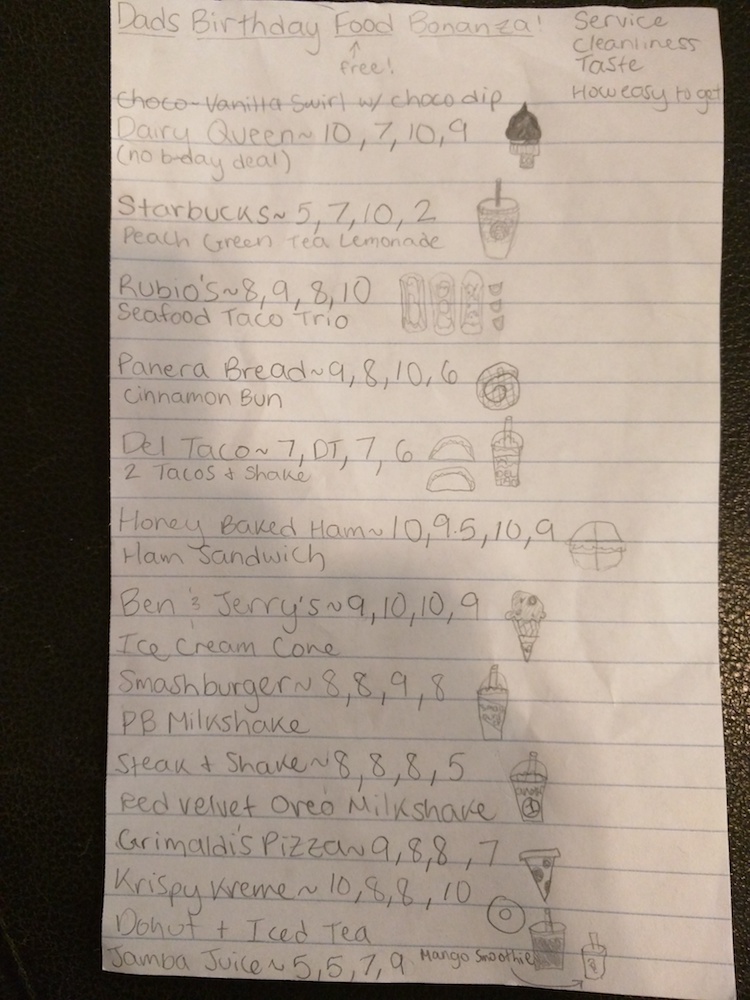 Dads Birthday Food Bonanza!
free!
Service
Cleanliness
Taste
How easy to get
Choco-Vanilla Swirl w/ choco dip
Dairy Queen ~ 10, 7, 10, 9
(no b-day deal)
Starbucks ~ 5, 7, 10, 2
Peach Green Tea Lemonade
Rubio's ~ 8, 9, 8, 10
Seafood Taco Trio
Panera Bread ~ 9, 8, 10, 6
Cinnamon Bun
Del Taco ~ 7, DT, 7, 6
2 Tacos + Shake
Honey Baked Ham ~ 10, 9.5, 10, 9
Ham Sandwich
Ben & Jerry's ~ 9, 10, 10, 9
Ice Cream Cone
Smashburger ~ 8, 8, 9, 8
PB Milkshake
Steak + Shake ~ 8, 8, 8, 5
Red Velvet Oreo Milkshake
Grimaldi's Pizza ~ 9, 8, 8, 7
Krispy Kreme ~ 10, 8, 8, 10
Donut + Iced Tea
Jamba Juice ~ 5, 5, 7, 9 Mango Smoothie